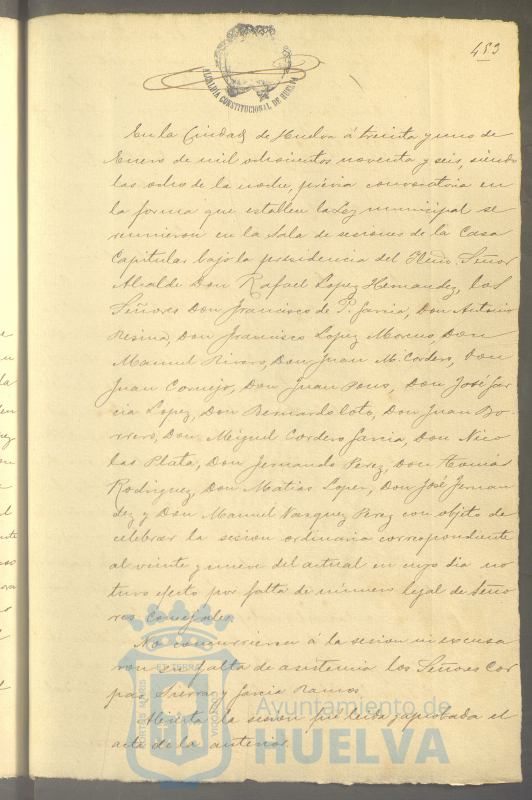 453
ALCALDIA CONSTITUCIONAL DE HUELVA
En la Ciudad de Huelva á treinta y uno de
Enero de mil ochocientos noventa y seis, siendo
las ocho de la noche, prévia convocatoria en
la forma que establece la Ley municipal se
reunieron en la Sala de sesiones de la Casa
Capitular bajo la presidencia del Señor
Alcalde Don Rafael Lopez Hernandez, los
Señores Don Francisco de P. Garcia, Don Antonio
Resina, Don Francisco Lopez Moreno, Don
Manuel Rivero, Don Juan M. Cordero, Don
Juan Cornejo, Don Juan Pons, Don José Gar
cia Lopez, Don Bernardo Coto, Don Juan Bo
rrero, Don Miguel Cordero Garcia, Don Nico
las Plata, Don Fernando Perez, Don Tomás
Rodriguez, Don Matias Lopez, Don José Fernan
dez y Don Manuel Vazquez Perez con objeto de
celebrar la sesion ordinaria correspondiente
al veinte y nueve del actual en cuyo dia no
tuvo efecto por falta de número legal de Seño
res Concejales.
No concurrieron á la sesion ni excusa
ron su falta de asistencia los Señores Cor
pas, Sierra y Garcia Ramos.
Abierta la sesion fué leida y aprobada el
acta de la anterior.
PORTUS MARIS ET TERRE CUSTODIA
Ayuntamiento de
HUELVA